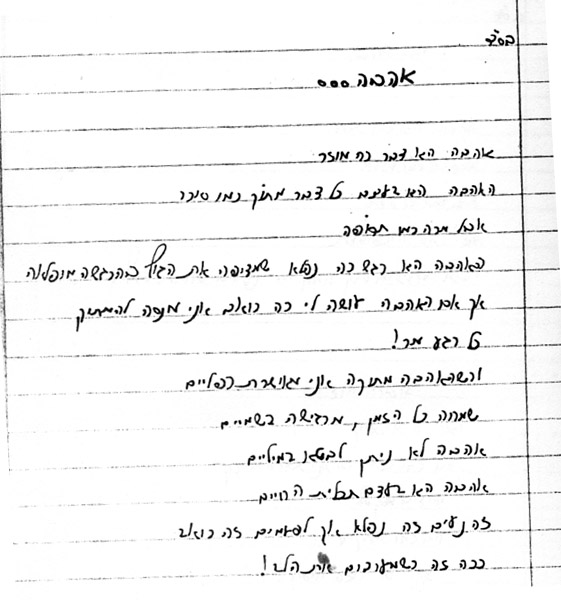 בס״ד
אהבה ...
אהבה היא דבר כה מוזר
האהבה היא בעצם כל דבר מתוק כמו סוכר
אבל מרה כמו תרופה
האהבה היא רגש כה נפלא שמציפה את הגוף בהרגשה מופלאה
אך אם האהבה עושה לי כה כואב אני מנסה להמתיק
כל רגע מר!
וכשהאהבה מתוקה אני מאושרת כפליים
שמחה כל הזמן, מרגישה בשמיים
אהבה לא ניתן לבטא במיליים
אהבה היא בעצם תכלית החיים
זה נעים זה נפלא אך לפעמים זה כואב
ככה זה כשמערבים את הלב!